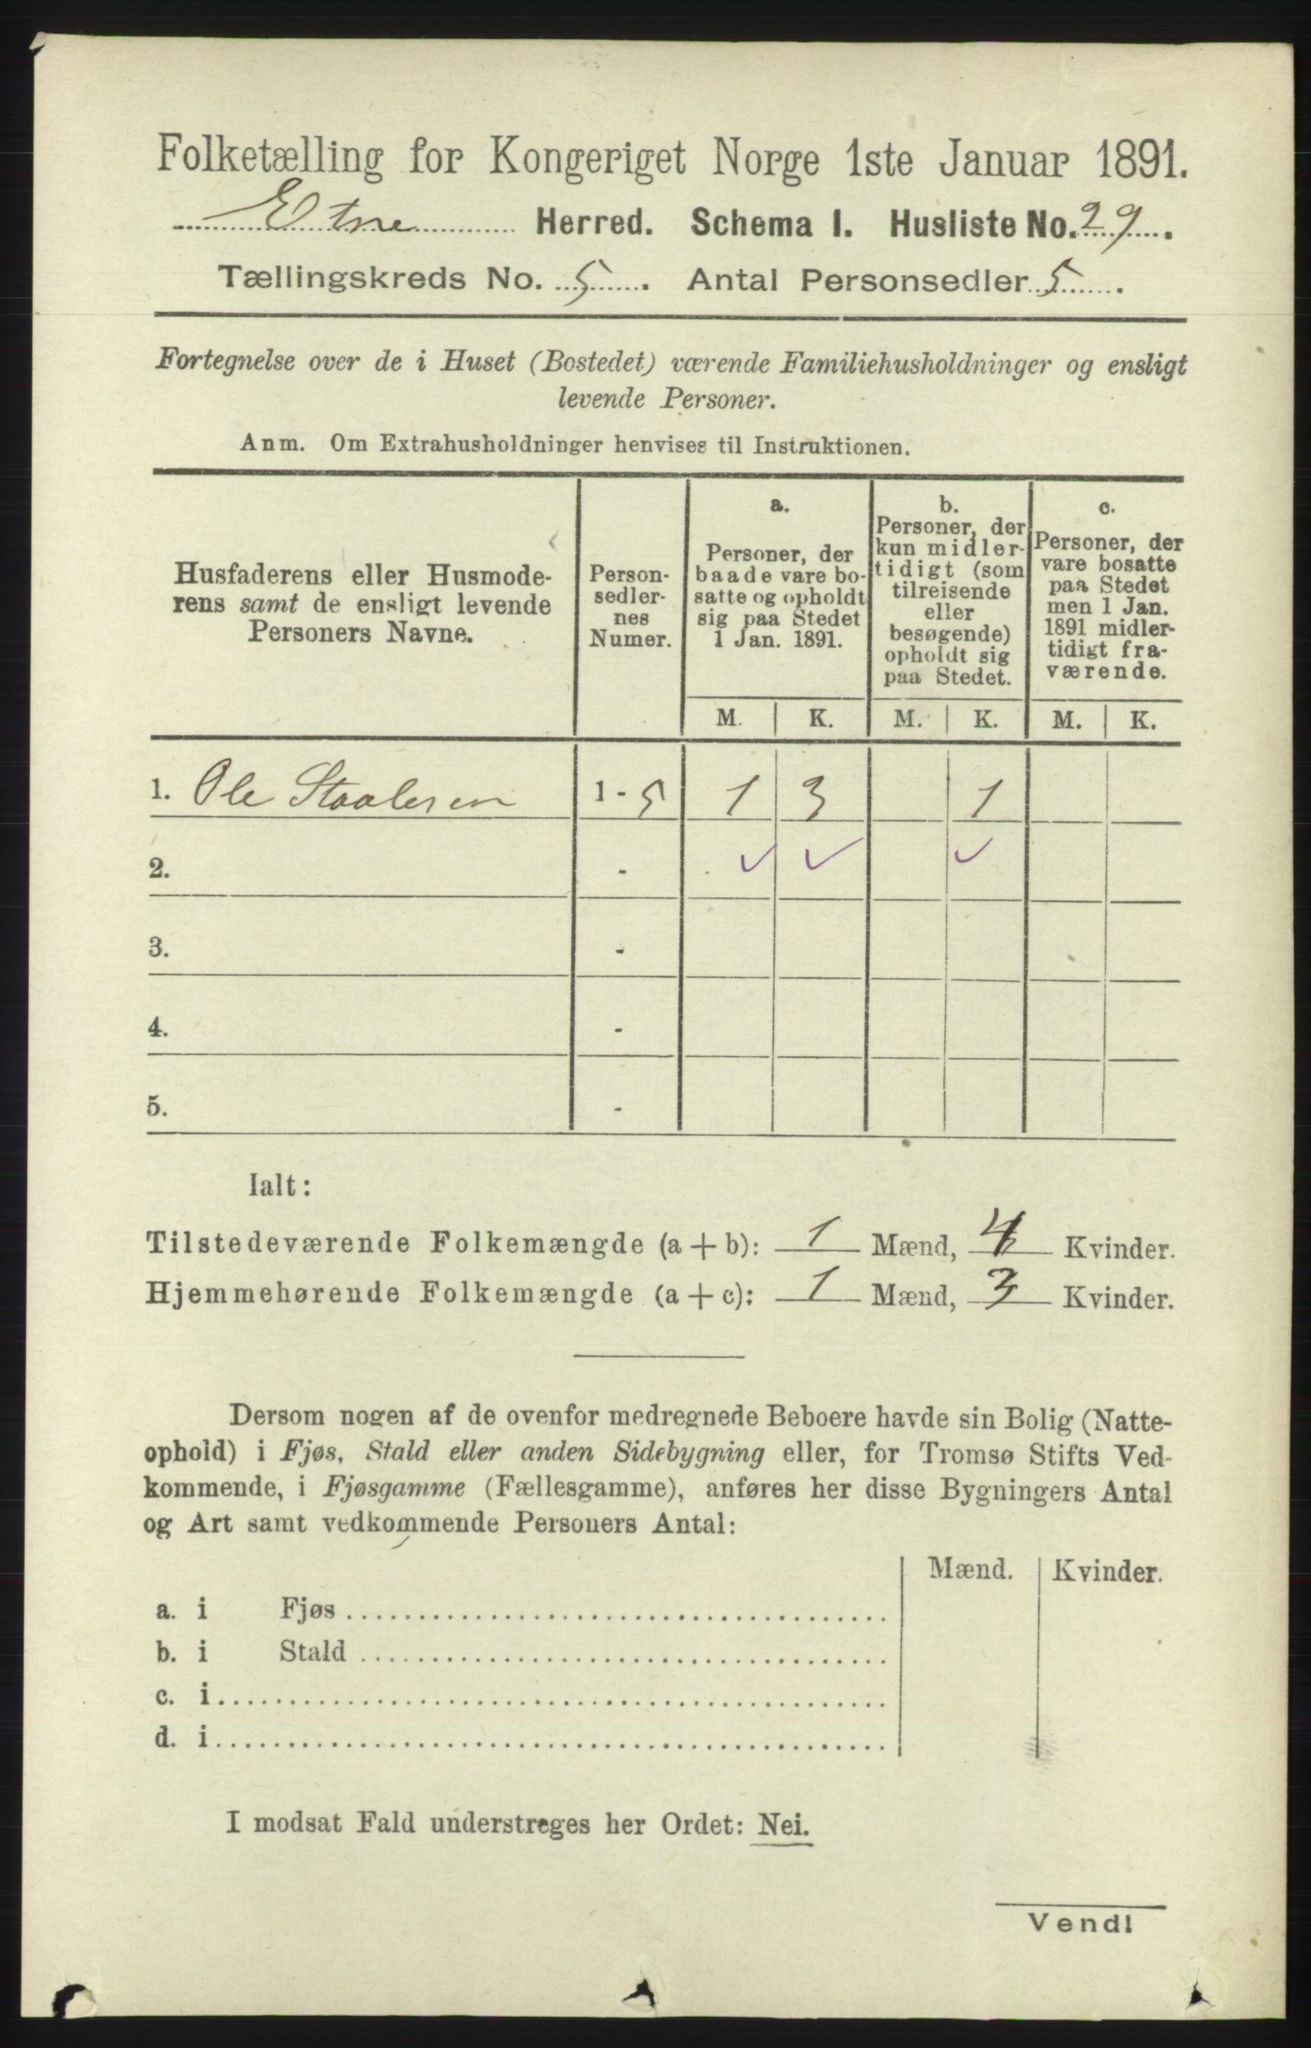 Folketælling for Kongeriget Norge 1ste Januar 1891.
Etne Herred. Schema I. Husliste No. 29.
Tællingskreds No. 5. Antal Personsedler 5.
Fortegnelse over de i Huset (Bostedet) værende Familiehusholdninger og ensligt
levende Personer.
Anm. Om Extrahusholdninger henvises til Instruktionen.
Husfaderens eller Husmode-
rens samt de ensligt levende
Personers Navne.
Person-
sedler-
nes
Numer.
a.
Personer, der
baade vare bo-
satte og opholdt
sig paa Stedet
1 Jan. 1891.
b.
Personer, der
kun midler-
tidigt (som
tilreisende
eller
besøgende)
opholdt sig
paa Stedet.
c.
Personer, der
vare bosatte
paa Stedet
men 1 Jan.
1891 midler-
tidigt fra-
værende.
M. K. M. K. M. K.
1. Ole Staalesen 1 - 5 1 3 1
2. - ✓ ✓ ✓
3. -
4. -
5. -
Ialt:
Tilstedeværende Folkemængde (a + b): 1 Mænd, 4 Kvinder.
Hjemmehørende Folkemængde (a + c): 1 Mænd, 3 Kvinder.
Dersom nogen af de ovenfor medregnede Beboere havde sin Bolig (Natte-
ophold) i Fjøs, Stald eller anden Sidebygning eller, for Tromsø Stifts Ved-
kommende, i Fjøsgamme (Fællesgamme), anføres her disse Bygningers Antal
og Art samt vedkommende Personers Antal:
Mænd. Kvinder.
a. i Fjøs
b. i Stald
c. i
d. i
I modsat Fald understreges her Ordet: Nei.
Vend!